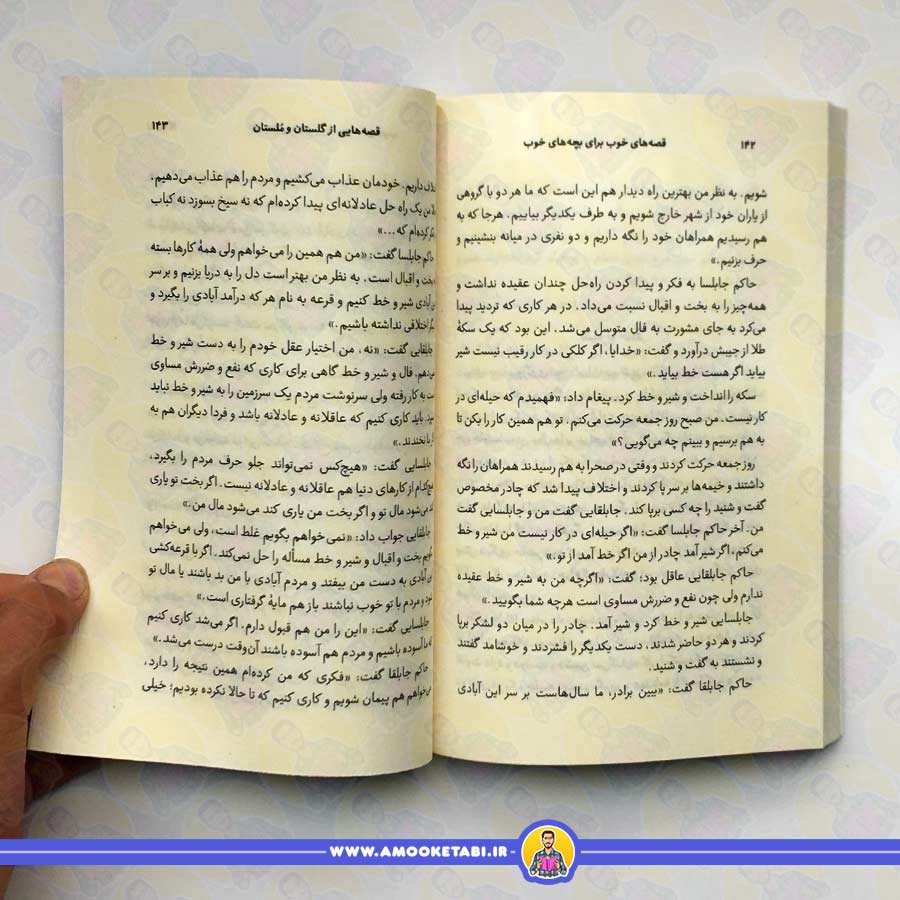 ۱۴۲
قصه‌های خوب برای بچه‌های خوب
شویم. به نظر من بهترین راه دیدار هم این است که ما هر دو با گروهی
از یاران خود از شهر خارج شویم و به طرف یکدیگر بیاییم. هرجا که به
هم رسیدیم همراهان خود را نگه داریم و دو نفری در میانه بنشینیم و
حرف بزنیم.»
حاکم جابلسا به فکر و پیدا کردن راه‌حل چندان عقیده نداشت و
همه‌چیز را به بخت و اقبال نسبت می‌داد. در هر کاری که تردید پیدا
می‌کرد به جای مشورت به فال متوسل می‌شد. این بود که یک سکهٔ
طلا از جیبش درآورد و گفت: «خدایا، اگر کلکی در کار رقیب نیست شیر
بیاید اگر هست خط بیاید.»
سکه را انداخت و شیر و خط کرد. پیغام داد: «فهمیدم که حیله‌ای در
کار نیست. من صبح روز جمعه حرکت می‌کنم. تو هم همین کار را بکن تا
به هم برسیم و ببینم چه می‌گویی؟»
روز جمعه حرکت کردند و وقتی در صحرا به هم رسیدند همراهان را نگه
داشتند و خیمه‌ها بر سر پا کردند و اختلاف پیدا شد که چادر مخصوص
گفت و شنید را چه کسی برپا کند. جابلقایی گفت من و جابلسایی گفت
من. آخر حاکم جابلسا گفت: «اگر حیله‌ای در کار نیست من شیر و خط
می‌کنم، اگر شیر آمد چادر از من اگر خط آمد از تو.»
حاکم جابلقایی عاقل بود؛ گفت: «اگرچه من به شیر و خط عقیده
ندارم ولی چون نفع و ضررش مساوی است هرچه شما بگویید.»
جابلسایی شیر و خط کرد و شیر آمد. چادر را در میان دو لشکر برپا
کردند و هر دو حاضر شدند، دست یکدیگر را فشردند و خوشامد گفتند
و نشستند به گفت و شنید.
حاکم جابلقا گفت: «ببین برادر، ما سال‌هاست بر سر این آبادی
قصه‌هایی از گلستان و مُلستان
۱۴۳
داریم. خودمان عذاب می‌کشیم و مردم را هم عذاب می‌دهیم.
من یک راه حل عادلانه‌ای پیدا کرده‌ام که نه سیخ بسوزد نه کباب
کرده‌ام که ...»
حاکم جابلسا گفت: «من هم همین را می‌خواهم ولی همهٔ کارها بسته
بخت و اقبال است. به نظر من بهتر است دل را به دریا بزنیم و بر سر
آبادی شیر و خط کنیم و قرعه به نام هر که درآمد آبادی را بگیرد و
اختلافی نداشته باشیم.»
جابلقایی گفت: «نه، من اختیار عقل خودم را به دست شیر و خط
نمی‌دهم. فال و شیر و خط گاهی برای کاری که نفع و ضررش مساوی
به کار رفته ولی سرنوشت مردم یک سرزمین را به شیر و خط نباید
باید کاری کنیم که عاقلانه و عادلانه باشد و فردا دیگران هم به
نخندند.»
جابلسایی گفت: «هیچ‌کس نمی‌تواند جلو حرف مردم را بگیرد،
هیچ‌کدام از کارهای دنیا هم عاقلانه و عادلانه نیست. اگر بخت تو یاری
می‌شود مال تو و اگر بخت من یاری کند می‌شود مال من.»
جابلقایی جواب داد: «نمی‌خواهم بگویم غلط است، ولی می‌خواهم
بگویم بخت و اقبال و شیر و خط مسأله را حل نمی‌کند. اگر با قرعه‌کشی
آبادی به دست من بیفتد و مردم آبادی با من بد باشند یا مال تو
و مردم با تو خوب نباشند باز هم مایهٔ گرفتاری است.»
جابلسایی گفت: «این را من هم قبول دارم. اگر می‌شد کاری کنیم
که ما آسوده باشیم و مردم هم آسوده باشند آن‌وقت درست می‌شد.»
حاکم جابلقا گفت: «فکری که من کرده‌ام همین نتیجه را دارد،
می‌خواهم هم پیمان شویم و کاری کنیم که تا حالا نکرده بودیم؛ خیلی
WWW.AMOOKETABI.IR